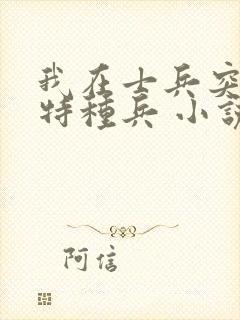 我在士兵突
特種兵 小説
阿信